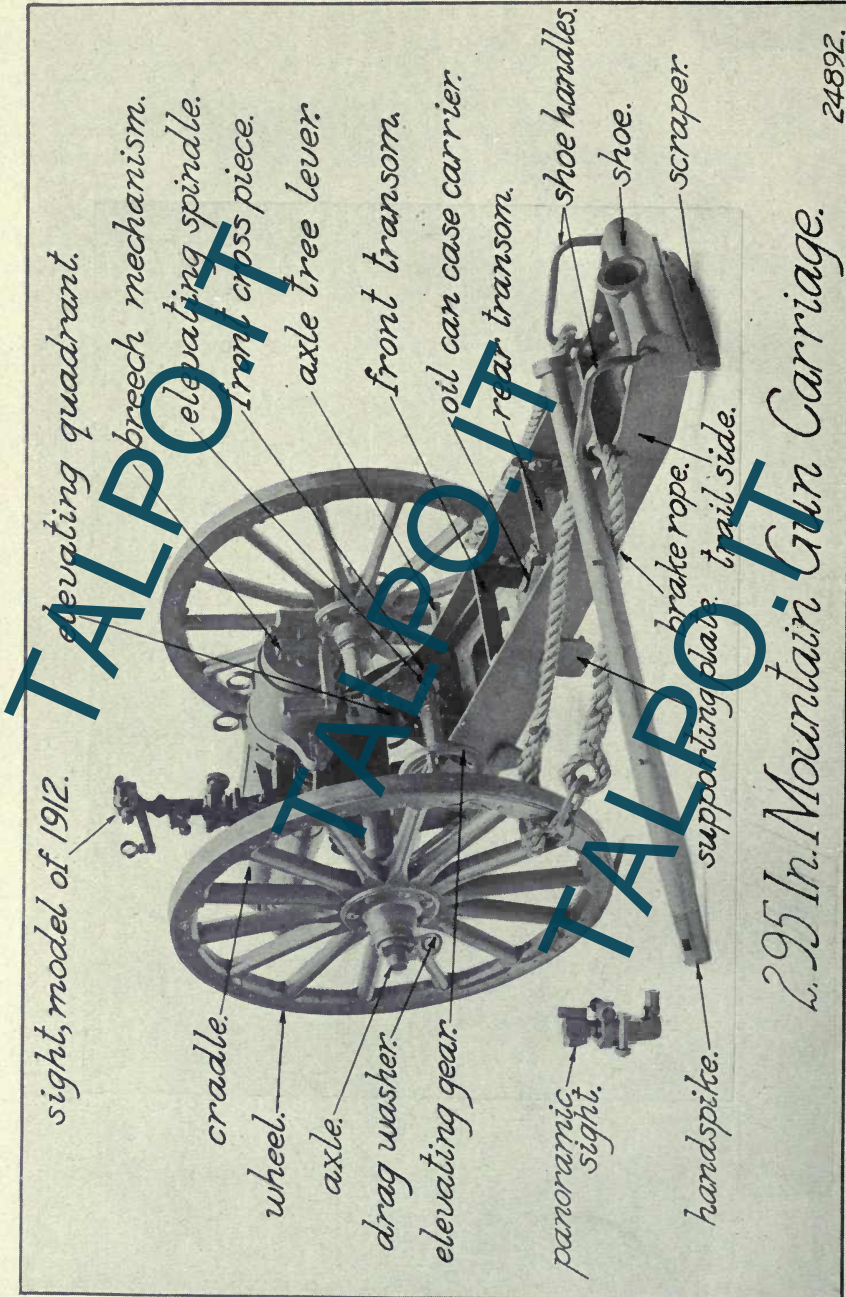 sight, model of 1912.
elevating quadrant.
breech mechanism.
elevating spindle.
front cross piece.
axle tree lever.
front transom.
oil can case carrier.
rear transom.
shoe handles.
shoe.
scraper.
cradle.
wheel.
axle.
drag washer.
elevating gear.
panoramic
sight.
handspike.
supporting plate.
brake rope.
trail side.
2.95 In. Mountain Gun Carriage.
24892.
TALPO.IT
TALPO.IT
TALPO.IT